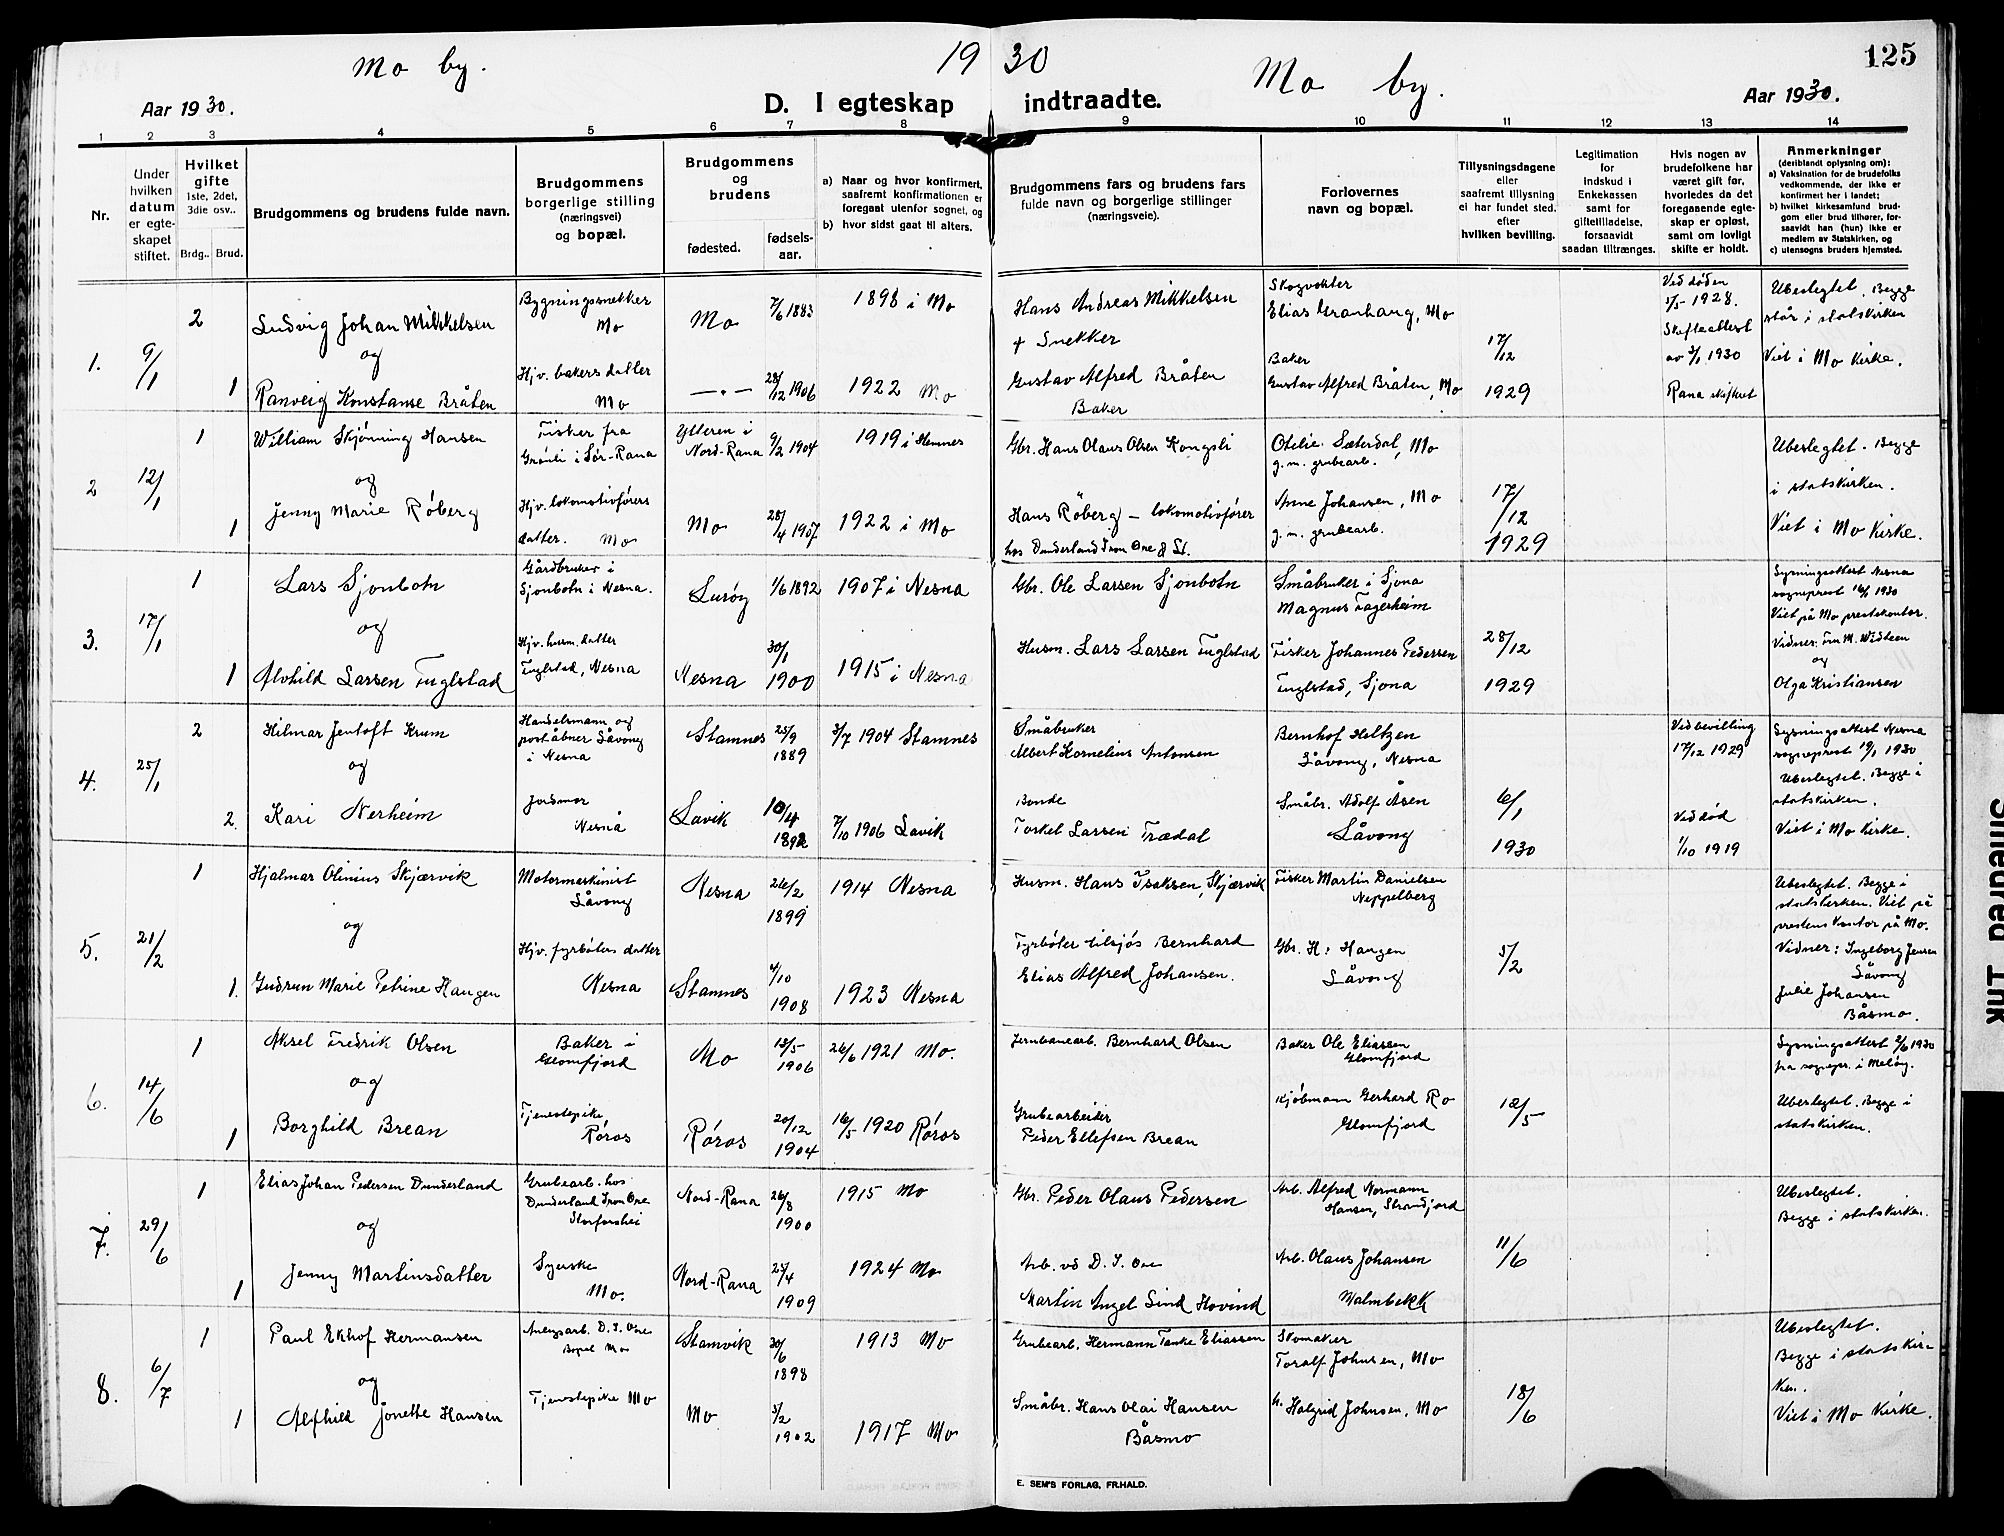 Mo by. 19 30 Mo by. 125
Aar 1930. D. I egteskap indtraadte. Aar 1930.
1 2 3 4 5 6 7 8 9 10 11 12 13 14
Nr.
Under hvilken datum er egteskapet stiftet.
Hvilket gifte 1ste, 2det, 3die osv..
Brdg.. Brud.
Brudgommens og brudens fulde navn.
Brudgommens borgerlige stilling (næringsvei) og bopæl.
Brudgommens og brudens
fødested. fødselsaar.
a) Naar og hvor konfirmert, saafremt konfirmationen er foregaat utenfor sognet, og
b) hvor sidst gaat til alters.
Brudgommens fars og brudens fars fulde navn og borgerlige stillinger (næringsveie).
Forlovernes navn og bopæl.
Tillysningsdagene eller saafremt tillysning ei har fundet sted. efter hvilken bevilling.
Legitimation for indskud i Enkekassen samt for giftetilladelse, forsaavidt saadan tiltrænges.
Hvis nogen av brudefolkene har været gift før, hvorledes da det foregaaende egteskap er opløst, samt om lovligt skifte er holdt.
Anmerkninger (deriblandt oplysning om):
a) Vaksination for de brudefolks vedkommende, der ikke er konfirmert her i landet;
b) hvilket kirkesamfund brudgom eller brud tilhører, forsaavidt han (hun) ikke er medlem av Statskirken, og
c) utensogns bruders hjemsted.
1. 9/1 2 1
Ludvig Johan Mikkelsen
og
Ranveig Konstanse Bråten
Bygningssnekker
Mo
Hjv. bakers datter
Mo
Mo 7/6 1883
—„— 28/12 1906
1898 i Mo
1922 Mo
Hans Andreas Mikkelsen
+ Snekker
Gustav Alfred Bråten
Baker
Skogvokter
Elias Granhaug, Mo
Baker
Gustav Alfred Bråten, Mo
17/12
1929
Ved døden
5/5 1928.
Skifteattest
av 3/1 1930
Rana skifteret
Ubeslegtet. Begge
står i statskirken
Viet i Mo Kirke.
2 12/1 1 1
William Skjønning Hansen
og
Jenny Marie Røberg
Fisker fra
Grønli i Sør-Rana
Hjv. lokomotivførers
datter. Mo
Ytteren i
Nord-Rana 9/2 1904
Mo 28/4 1907
1919 i Hemnes
1922 i Mo
Gbr. Hans Olaus Olsen Kongsli
Hans Røberg – lokomotivfører
hos Dunderland Iron Ore & St.
Otelie Sæterdal, Mo
g.m. grubearb.
Anne Johansen, Mo
g.m. grubearb.
17/12
1929
Ubeslegtet. Begge
i statskirken.
Viet i Mo Kirke.
3. 17/1 1 1
Lars Sjonbotn
og
Alvhild Larsen Fuglstad
Gårdbruker i
Sjonbotn i Nesna.
Hjv. husm. datter
Fuglstad, Nesna
Lurøy 1/6 1892
Nesna 30/1 1900
1907 i Nesna
1915 i Nesna
Gbr. Ole Larsen Sjonbotn
Husm. Lars Larsen Fuglstad
Småbruker i Sjona
Magnus Fagerheim
Fisker Johannes Pedersen
Fuglstad, Sjona
28/12
1929
Lysningsattest Nesna
sogneprest 16/1 1930
Viet på Mo prestekontor.
Vidner: Fru M. Widteen
og
Olga Kristiansen
4. 25/1 2 2.
Hilmar Jentoft Krum
og
Kari Nerheim
Handelsmann og
poståbner Låvong
i Nesna
Jordmor
Nesna
Stamnes 25/9 1889
Lavik 10/4 1892
3/7 1904 Stamnes
7/10 1906 Lavik
Småbruker
Albert Kornelius Antonsen
Bonde
Torkel Larsen Trædal
Bernhof Heltzen
Låvong, Nesna
Småbr. Adolf Åsen
Låvong
6/1
1930
Ved bevilling
17/12 1929
Ved død
1/10 1919
Lysningsattest Nesna
sogneprest 19/1 1930
Ubeslegtet. Begge i
statskirken.
Viet i Mo Kirke.
5. 21/2 1 1.
Hjalmar Olinius Skjærvik
og
Gudrun Marie Petrine Haugen
Motormaskinist
Låvong
Hjv. fyrbøters datter
Nesna
Nesna 26/2 1899
Stamnes 4/10 1908
1914 Nesna
1923 Nesna
Husm. Hans Isaksen, Skjærvik
Fyrbøter tilsjøs Bernhard
Elias Alfred Johansen.
Fisker Martin Danielsen
Neppelberg
Gbr. H. Haugen
Låvong
5/2
Ubeslegtet. Begge i
statskirken. Viet på
prestens kontor på Mo.
Vidner: Ingeborg Jensen
Låvong
Julie Johansen
Båsmo.
6. 14/6 1 1
Aksel Fredrik Olsen
og
Borghild Brean
Baker i
Glomfjord
Tjenestepike
Røros
Mo 13/5 1906
Røros 20/12 1904
26/6 1921 Mo.
16/5 1920 Røros
Jernbanearb. Bernhard Olsen
Grubearbeider
Peder Ellefsen Brean
Baker Ole Eliassen
Glomfjord
Kjøbmann Gerhard Ro
Glomfjord
18/5
Lysningsattest 2/6 1930
fra sognepr. i Meløy.
Ubeslegtet. Begge i
statskirken.
7. 29/6 1 1
Elias Johan Pedersen Dunderland
og
Jenny Martinsdatter
Grubearb. hos
Dunderland Iron Ore
Storforshei
Syerske
Mo.
Nord-Rana 26/8 1900
Nord-Rana 25/4 1909
1915 Mo
1924 Mo
Gbr. Peder Olaus Pedersen
Arb. vd D. I. Ore
Martin Angel Lind Hovind
Arb. Alfred Normann
Hansen, Strandjord
Arb. Olaus Johansen
Malmbekk
11/6
Ubeslegtet.
Begge i statskirken.
8. 6/7 1 1
Paul Ekhof Hermansen
og
Alfhild Jonette Hansen
Anlegsarb. D. I. Ore
Bopel Mo
Tjenestepike Mo
Stamvik 30/6 1898
Mo 5/2 1902
1913 Mo
1917 Mo
Grubearb. Hermann Tanke Eliassen
Småbr. Hans Olai Hansen
Båsmo
Skomaker
Toralf Johnsen, Mo
Halgrid Johnsen, Mo
18/6
Ubeslegtet.
Begge i statskirken.
Viet i Mo Kirke.
E. SEM'S FORLAG, FR.HALD.